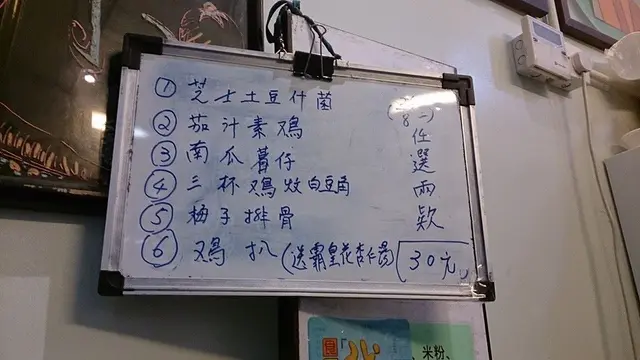 ① 芝士土豆什菌
② 茄汁素鸡
③ 南瓜薯仔
④ 三杯鸡炆白豆角
⑤ 梅子排骨
⑥ 鸡扒(送霸皇花杏仁湯)
任選兩款
30元
米粉、